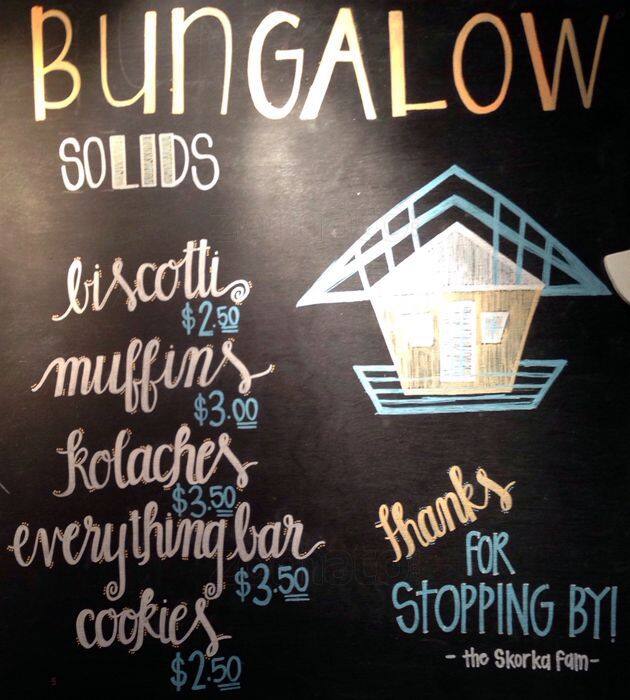 BUNGALOW
SOLIDS
biscotti
$2.50
muffins
$3.00
kolaches
$3.50
everything bar
$3.50
cookies
$2.50
thanks
FOR
STOPPING BY!
- the Skorka fam -